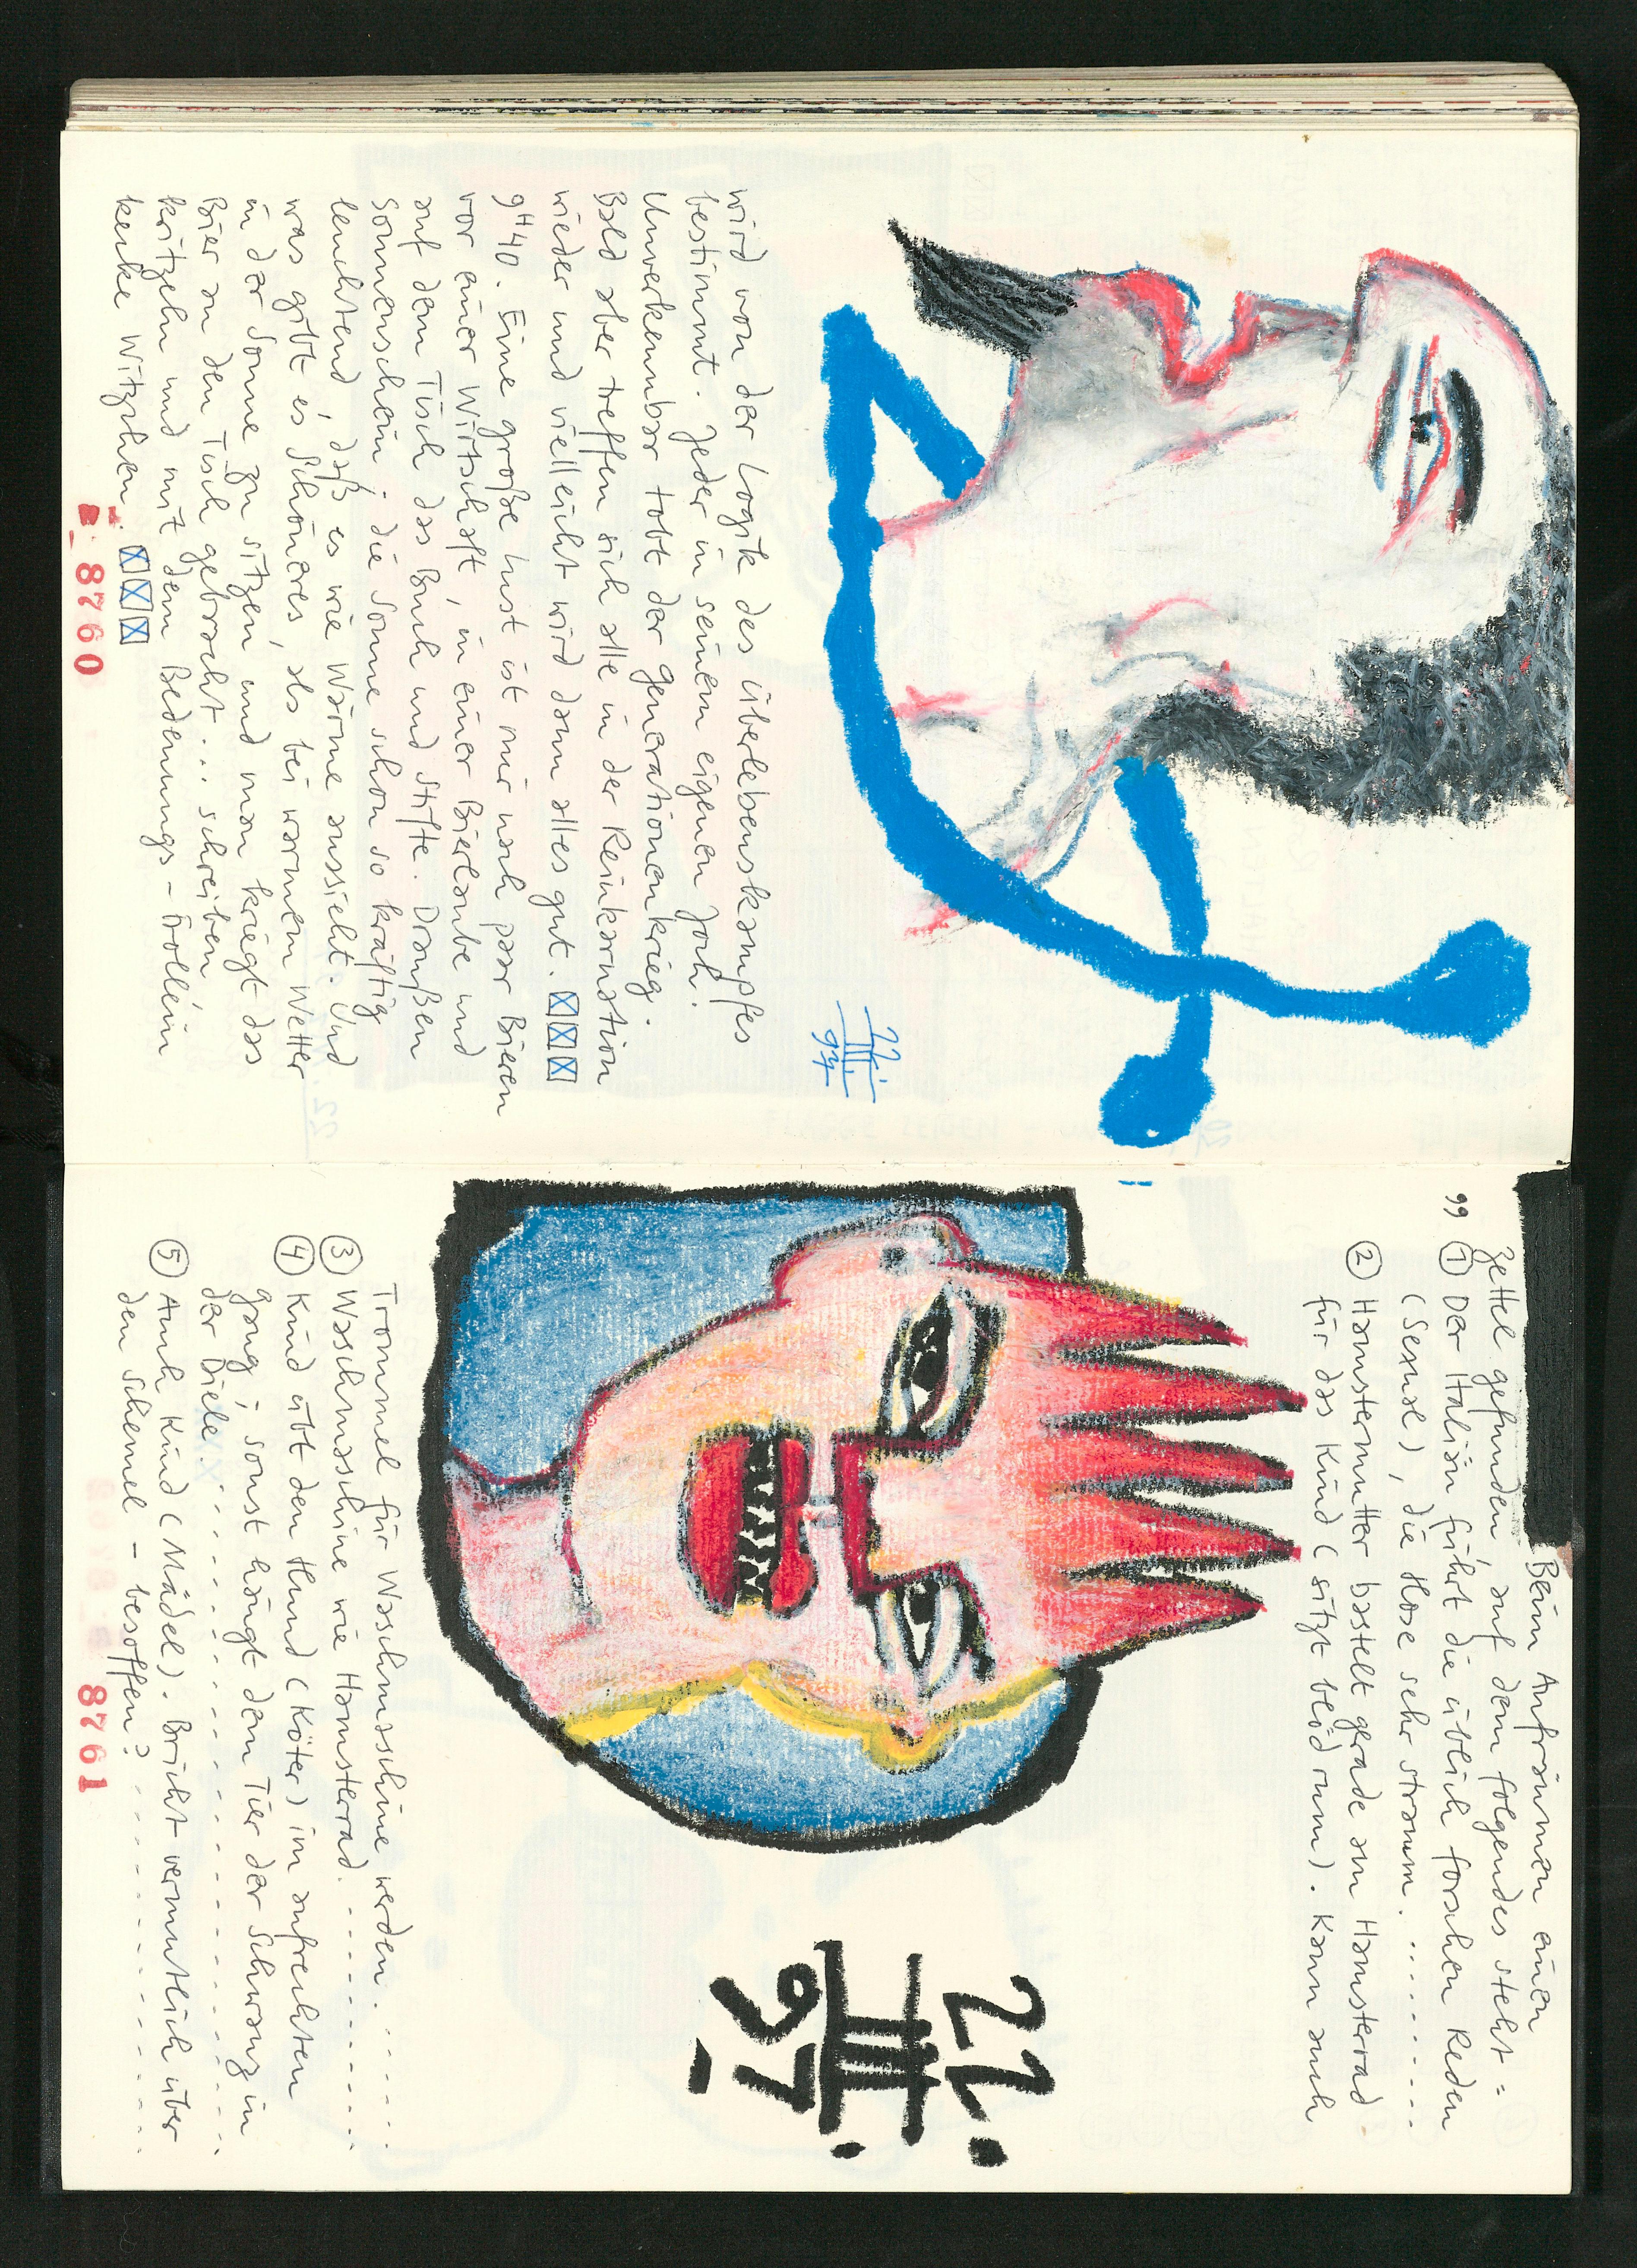 22.
III.
97
wird von der Logik des Überlebenskampfes
bestimmt. Jeder in seinem eigenen Joch.
Unverkennbar tobt der Generationenkrieg.
Bald aber treffen sich alle in der Reinkarnation
wieder und vielleicht wird dann alles gut.
9H40. Eine große Lust ist mir nach paar Bieren
vor einer Wirtschaft, in einer Bierlaube und
auf dem Tisch das Buch und Stifte. Draußen
Sonnenschein; die Sonne schon so kräftig
leuchtend, daß es wie Wärme aussieht. Und
was gibt es Schöneres, als bei warmem Wetter
in der Sonne zu sitzen und man kriegt das
Bier an den Tisch gebracht... schreiben,
kritzeln und mit dem Bedienungs-Frollein
kecke Witzchen.
8760
Beim Aufräumen einen
Zettel gefunden, auf dem folgendes steht =
99 ① Der Italiän führt die üblich forschen Reden
(Sexual), die Hose sehr stramm..........
② Hamstermutter bastelt gerade am Hamsterrad
für das Kind (sitzt blöd rum). Kann auch
Trommel für Waschmaschine werden. ......
③ Waschmaschine wie Hamsterrad. .........
④ Kind übt den Hund (Köter) im aufrechten
Gang; sonst hängt dem Tier der Schwanz in
der Diele. ...................
⑤ Auch Kind (Mädel). Bricht vermutlich über
den Schemel - besoffen? ...............
22.
III.
97
8761